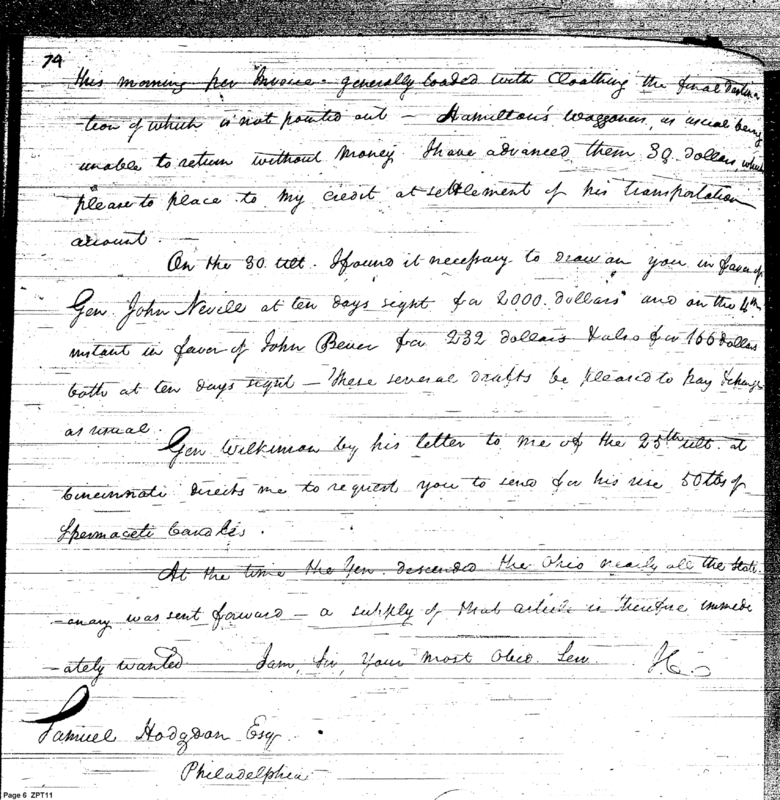 74
this morning per Invoice - generally loaded with Cloathing the final destina
-tion of which is not pointed out — Hamilton's Waggoners, as usual being
unable to return without money I have advanced them 30 dollars, which
please to place to my credit at settlement of his transportation
account.
On the 30 ult. I found it necessary to draw on you in favor of
Gen. John Nevill at ten days sight for 2000 dollars and on the 4th
instant in favor of John Bever for 232 dollars & also for 166 dollars
both at ten days sight — These several drafts be pleased to pay & charge
as usual.
Gen Wilkinson by his letter to me of the 25th ult. at
Cincinnati directs me to request you to send for his use 50 lbs of
Spermaceti Candles.
At the time the Gen. descended the Ohio nearly all the Stati
-onary was sent forward — a supply of that article is therefore immedi
-ately wanted I am, Sir, Your most Obed. Serv.
Samuel Hodgdon Esq
Philadelphia
Page 6 ZPT11